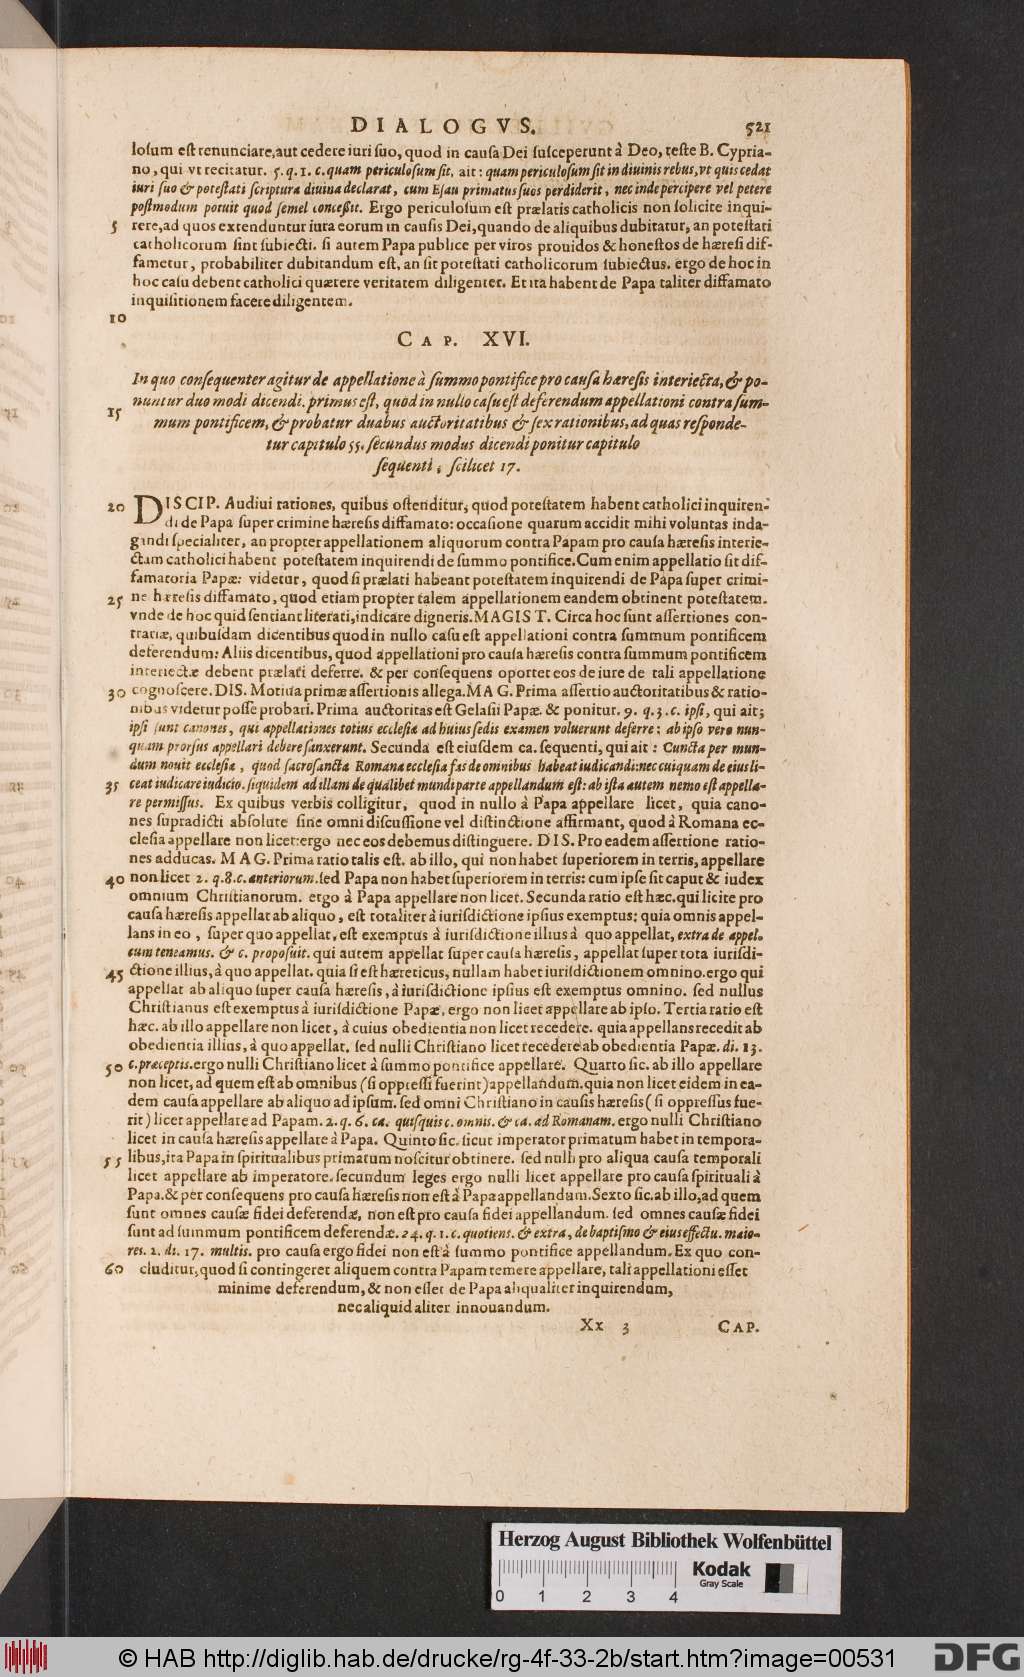 DIALOGVS. 521
losum est renunciare, aut cedere iuri suo, quod in causa Dei susceperunt à Deo, teste B. Cypria-
no, qui vt recitatur. 5. q. 1. c. quam periculosum sit, ait: quam periculosum sit in diuinis rebus, vt quis cedat
iuri suo & potestati scriptura diuina declarat, cum Esau primatus suos perdiderit, nec inde percipere vel petere
postmodum potuit quod semel concessit. Ergo periculosum est prælatis catholicis non solicite inqui-
5 rere, ad quos extenduntur iura eorum in causis Dei, quando de aliquibus dubitatur, an potestati
catholicorum sint subiecti. si autem Papa publice per viros prouidos & honestos de hæresi dif-
fametur, probabiliter dubitandum est, an sit potestati catholicorum subiectus. ergo de hoc in
hoc casu debent catholici quærere veritatem diligenter. Et ita habent de Papa taliter diffamato
inquisitionem facere diligentem.
10
CAP. XVI.
In quo consequenter agitur de appellatione à summo pontifice pro causa hæresis interiecta, & po-
nuntur duo modi dicendi. primus est, quod in nullo casu est deferendum appellationi contra sum-
15 mum pontificem, & probatur duabus auctoritatibus & sex rationibus, ad quas responde-
tur capitulo 55. secundus modus dicendi ponitur capitulo
sequenti, scilicet 17.
20 DISCIP. Audiui rationes, quibus ostenditur, quod potestatem habent catholici inquiren-
di de Papa super crimine hæresis diffamato: occasione quarum accidit mihi voluntas inda-
gandi specialiter, an propter appellationem aliquorum contra Papam pro causa hæresis interie-
ctam catholici habent potestatem inquirendi de summo pontifice. Cum enim appellatio sit dif-
famatoria Papæ: videtur, quod si prælati habeant potestatem inquirendi de Papa super crimi-
25 ne hæresis diffamato, quod etiam propter talem appellationem eandem obtinent potestatem.
vnde de hoc quid sentiant literati, indicare digneris. MAGIST. Circa hoc sunt assertiones con-
trariæ, quibusdam dicentibus quod in nullo casu est appellationi contra summum pontificem
deferendum: Aliis dicentibus, quod appellationi pro causa hæresis contra summum pontificem
interiectæ debent prælati deferre. & per consequens oportet eos de iure de tali appellatione
30 cognoscere. DIS. Motiua primæ assertionis allega. MAG. Prima assertio auctoritatibus & ratio-
nibus videtur posse probari. Prima auctoritas est Gelasii Papæ. & ponitur. 9. q. 3. c. ipsi, qui ait;
ipsi sunt canones, qui appellationes totius ecclesiæ ad huius sedis examen voluerunt deferre: ab ipso vero nun-
quam prorsus appellari debere sanxerunt. Secunda est eiusdem ca. sequenti, qui ait: Cuncta per mun-
dum nouit ecclesia, quod sacrosancta Romana ecclesia fas de omnibus habeat iudicandi: nec cuiquam de eius li-
35 ceat iudicare iudicio. siquidem ad illam de qualibet mundi parte appellandum est: ab ista autem nemo est appella-
re permissus. Ex quibus verbis colligitur, quod in nullo à Papa appellare licet, quia cano-
nes supradicti absolute sine omni discussione vel distinctione affirmant, quod à Romana ec-
clesia appellare non licet: ergo nec eos debemus distinguere. DIS. Pro eadem assertione ratio-
nes adducas. MAG. Prima ratio talis est. ab illo, qui non habet superiorem in terris, appellare
40 non licet 2. q. 8. c. anteriorum. sed Papa non habet superiorem in terris: cum ipse sit caput & iudex
omnium Christianorum. ergo à Papa appellare non licet. Secunda ratio est hæc. qui licite pro
causa hæresis appellat ab aliquo, est totaliter à iurisdictione ipsius exemptus: quia omnis appel-
lans in eo, super quo appellat, est exemptus à iurisdictione illius à quo appellat, extra de appel.
cum teneamus. & c. proposuit. qui autem appellat super causa hæresis, appellat super tota iurisdi-
45 ctione illius, à quo appellat. quia si est hæreticus, nullam habet iurisdictionem omnino. ergo qui
appellat ab aliquo super causa hæresis, à iurisdictione ipsius est exemptus omnino. sed nullus
Christianus est exemptus à iurisdictione Papæ, ergo non licet appellare ab ipso. Tertia ratio est
hæc. ab illo appellare non licet, à cuius obedientia non licet recedere. quia appellans recedit ab
obedientia illius, à quo appellat. sed nulli Christiano licet recedere ab obedientia Papæ. di. 13.
50 c. præceptis. ergo nulli Christiano licet à summo pontifice appellare. Quarto sic. ab illo appellare
non licet, ad quem est ab omnibus (si oppressi fuerint) appellandum. quia non licet eidem in ea-
dem causa appellare ab aliquo ad ipsum. sed omni Christiano in causis hæresis (si oppressus fue-
rit) licet appellare ad Papam. 2. q. 6. ca. quisquis c. omnis. & ca. ad Romanam. ergo nulli Christiano
licet in causa hæresis appellare à Papa. Quinto sic. sicut imperator primatum habet in tempora-
55 libus, ita Papa in spiritualibus primatum noscitur obtinere. sed nulli pro aliqua causa temporali
licet appellare ab imperatore. secundum leges ergo nulli licet appellare pro causa spirituali à
Papa. & per consequens pro causa hæresis non est à Papa appellandum. Sexto sic. ab illo, ad quem
sunt omnes causæ fidei deferendæ, non est pro causa fidei appellandum. sed omnes causæ fidei
sunt ad summum pontificem deferendæ. 24. q. 1. c. quotiens. & extra, de baptismo & eius effectu. maio-
res. 2. di. 17. multis. pro causa ergo fidei non est à summo pontifice appellandum. Ex quo con-
60 cluditur, quod si contingeret aliquem contra Papam temere appellare, tali appellationi esset
minime deferendum, & non esset de Papa aliqualiter inquirendum,
nec aliquid aliter innouandum.
Xx 3 CAP.
Herzog August Bibliothek Wolfenbüttel
0 1 2 3 4
Kodak
Gray Scale
© HAB http://diglib.hab.de/drucke/rg-4f-33-2b/start.htm?image=00531
DFG